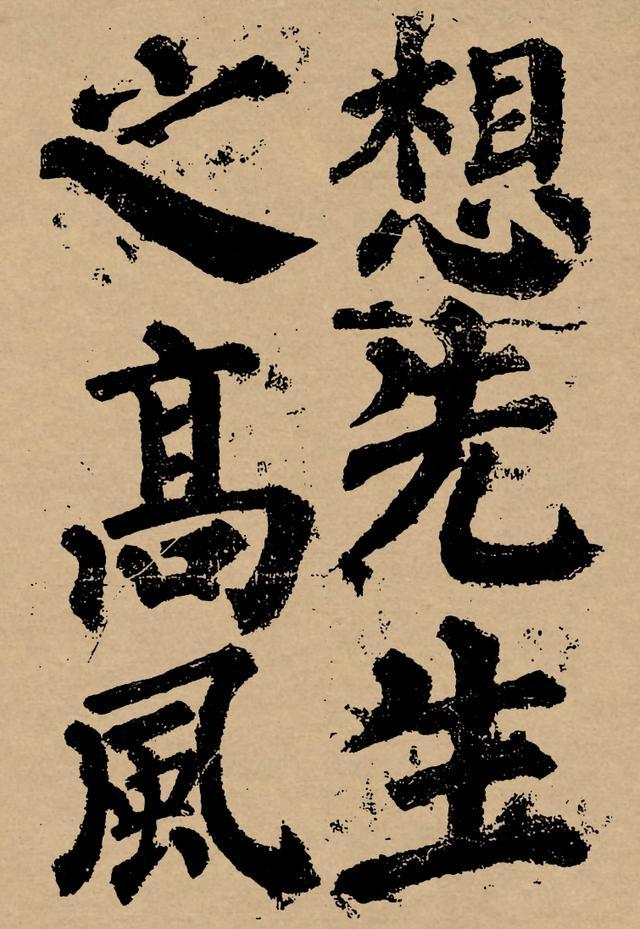 想先生
之髙風